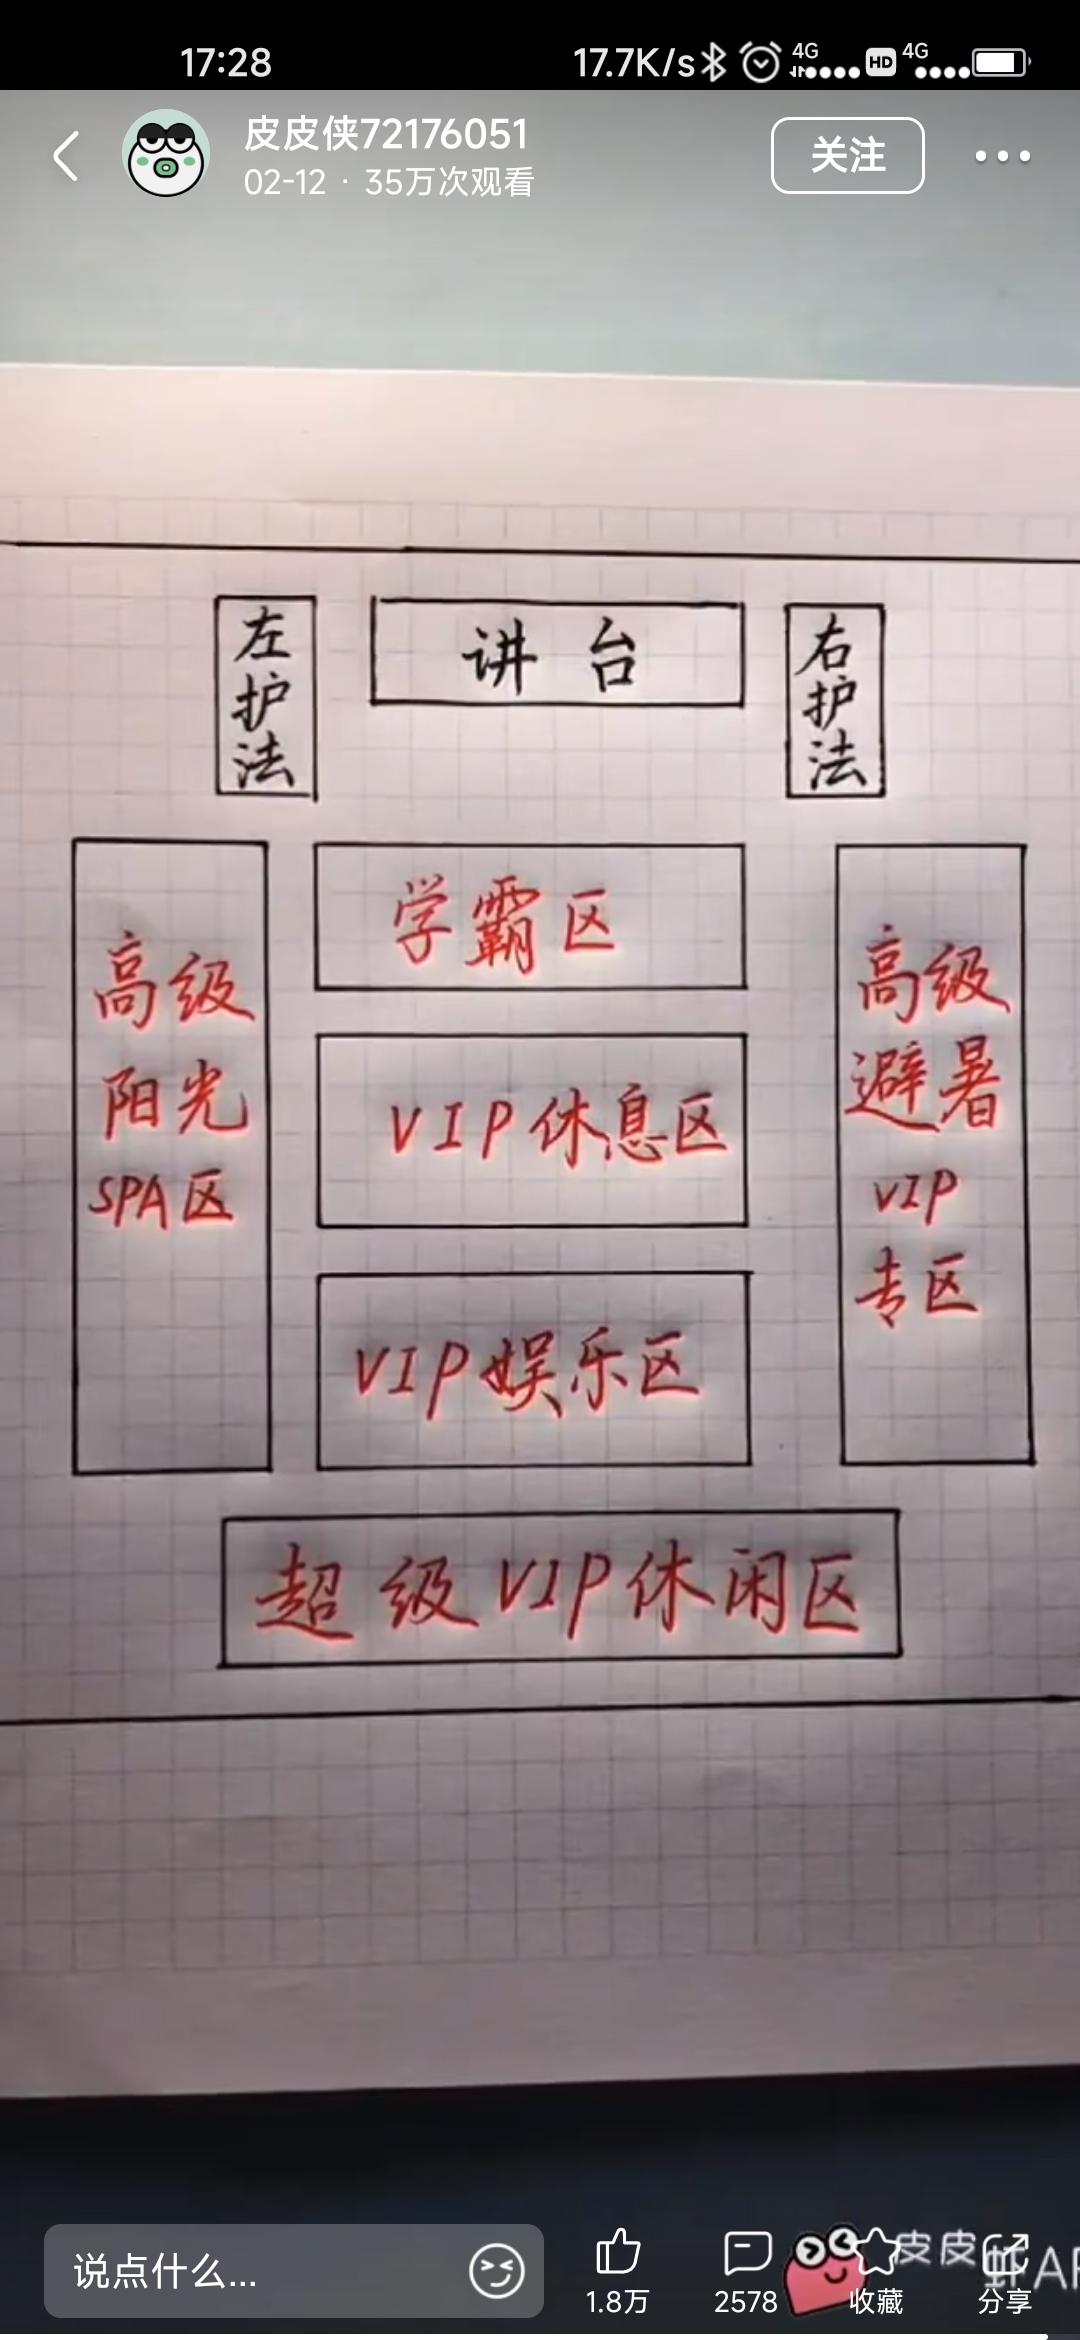 17:28
17.7K/s
4G
HD
4G
皮皮侠72176051
02-12 · 35万次观看
关注
左护法
讲台
右护法
高级
阳光
SPA区
学霸区
VIP休息区
VIP娱乐区
高级
避暑
VIP
专区
超级VIP休闲区
说点什么...
1.8万
2578
收藏
分享
皮皮虾AP